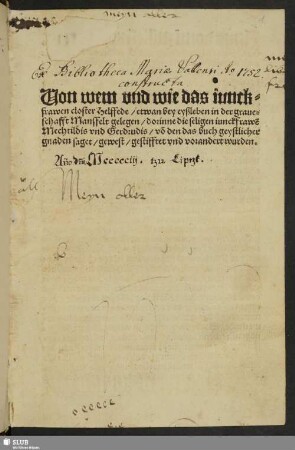 Ex Bibliotheca Mariæ Vallensi Ao 1752.
constructa
Von wem vnd wie das iunck-
frawen closter Helffede / etwan bey eysleben in der graue-
schafft Manßfelt gelegen / dorinne die seligen iunckfrawē
Mechtildis vnd Gerdrudis / vō den das buch geystlicher
gnaden saget / gewest / gestifftet vnd vorandert wurden.
Año dñi Mccccciij. tzu Liptzk.
Meyn oller
SLUB